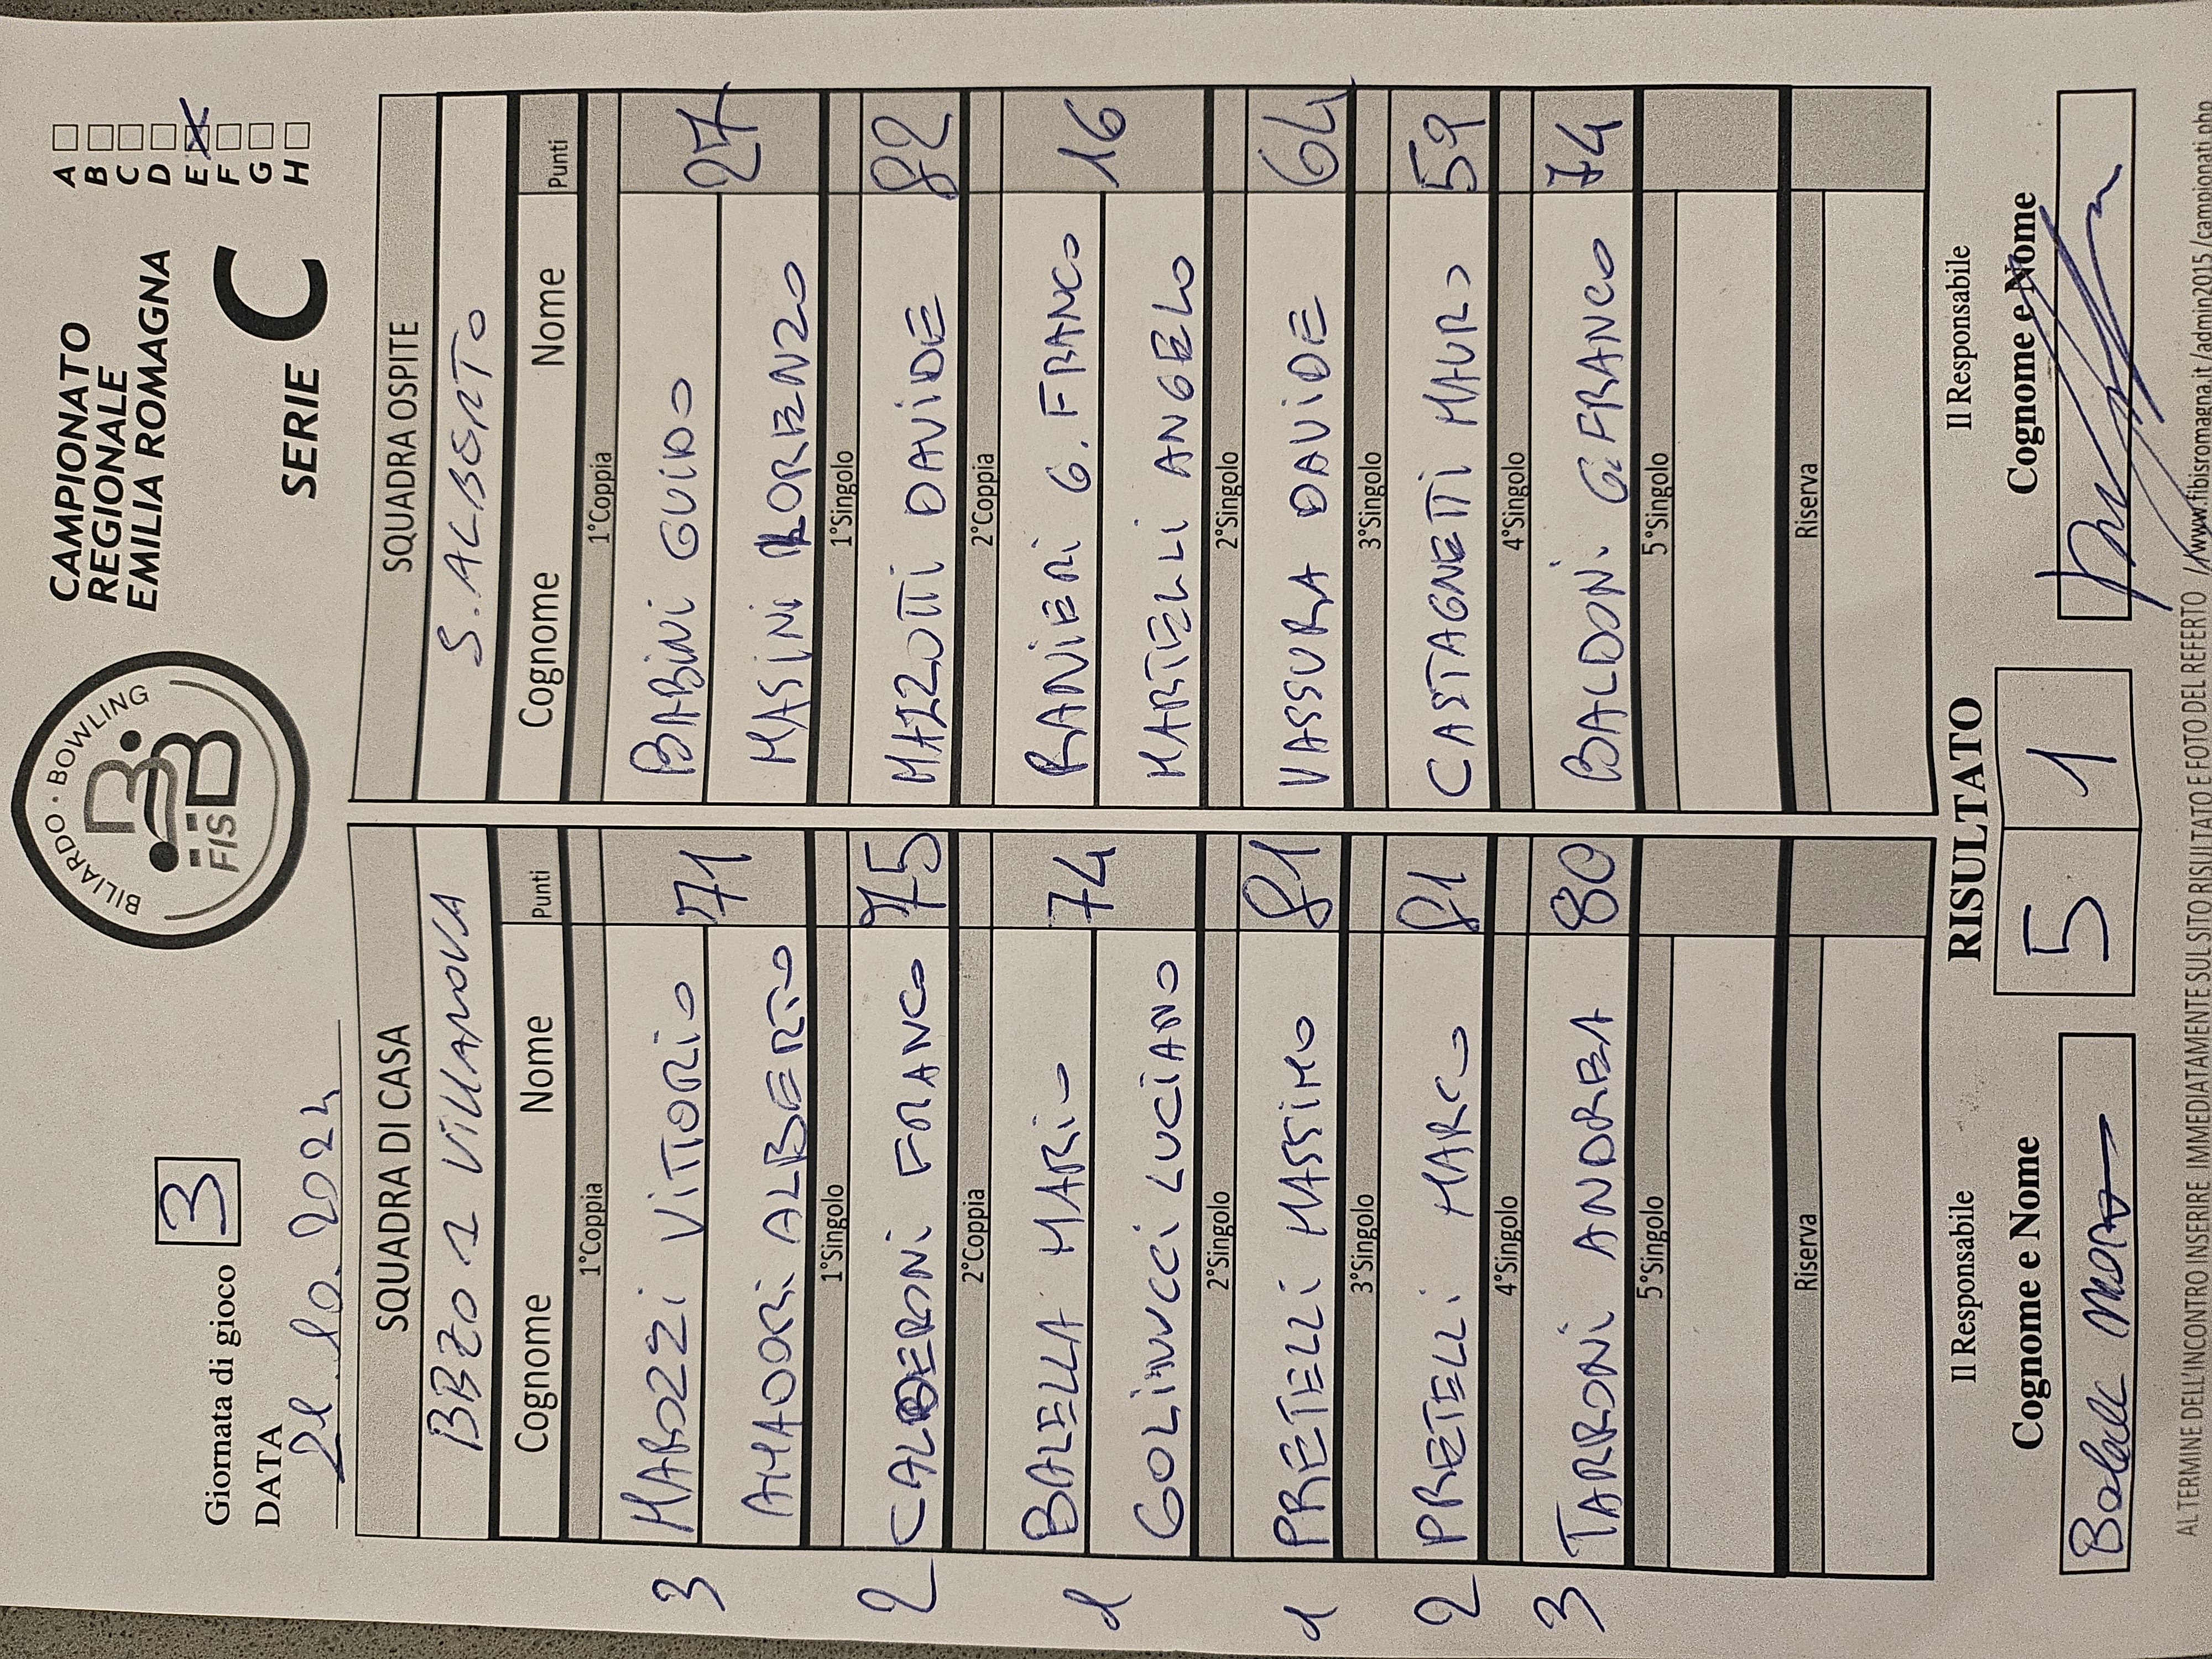 Giornata di gioco 3
DATA
21.10.2024
BILIARDO · BOWLING
FISBB
CAMPIONATO
REGIONALE
EMILIA ROMAGNA
SERIE C
A
B
C
D
E X
F
G
H
SQUADRA DI CASA
BBZO 1 VILLANOVA
Cognome Nome Punti
1°Coppia
3 MAROZZI VITTORIO 71
AMADORI ALBERTO
1°Singolo
2 CALDERONI FRANCO 75
2°Coppia
1 BALELLA MARIO 74
GOLINUCCI LUCIANO
2°Singolo
1 PRETELLI MASSIMO 81
3°Singolo
2 PRETELLI MARCO 81
4°Singolo
3 TARRONI ANDREA 80
5°Singolo
Riserva
SQUADRA OSPITE
S.ALBERTO
Cognome Nome Punti
1°Coppia
BABINI GUIDO 27
MASINI LORENZO
1°Singolo
MAZZOTTI DAVIDE 82
2°Coppia
RANIERI G. FRANCO 16
MARTELLI ANGELO
2°Singolo
VASSURA DAVIDE 64
3°Singolo
CASTAGNETTI MAURO 59
4°Singolo
BALDONI G.FRANCO 74
5°Singolo
Riserva
Il Responsabile
Cognome e Nome
RISULTATO
5 1
Il Responsabile
Cognome e Nome
AL TERMINE DELL'INCONTRO INSERIRE IMMEDIATAMENTE SUL SITO RISULTATO E FOTO DEL REFERTO //www.fibisromagna.it/admin2015/campionati.php